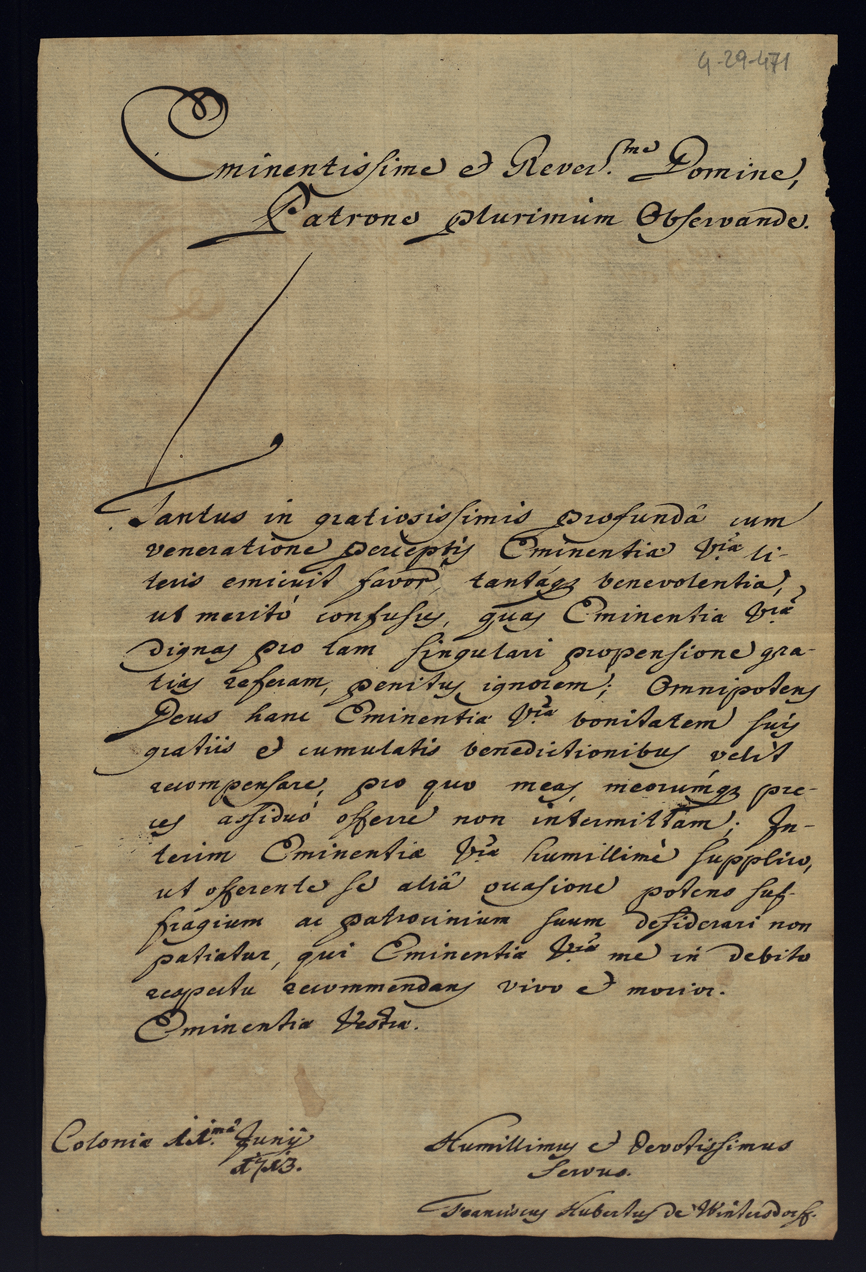 G-29-471
Eminentissime et Rever.me Domine,
Patrone plurimùm Observande.
Tantus in gratiosissimis profundâ cum
veneratione perceptis Eminentiæ Vræ li-
teris emicuit favor, tantáq; benevolentia,
ut meritó confusus, quas Eminentiæ Vræ
dignas pro tam singulari propensione gra-
tias referam, penitus ignorem; Omnipotens
Deus hanc Eminentiæ Vræ bonitatem suis
gratiis et cumulatis benedictionibus velit
recompensare, pro quo meas, meorúmq; pre-
ces assiduó offerre non intermittam; In-
terim Eminentiæ Vræ humillimè supplico,
ut offerente se aliâ occasione potens suf-
fragium ac patrocinium suum desiderari non
patiatur, qui Eminentiæ Vræ me in debito
respectu recommendans vivo et morior.
Eminentiæ Vestræ.
Coloniæ 11.mâ Junij
1713.
Humillimus et devotissimus
servus.
Franciscus Hubertus de Wintersdorff.